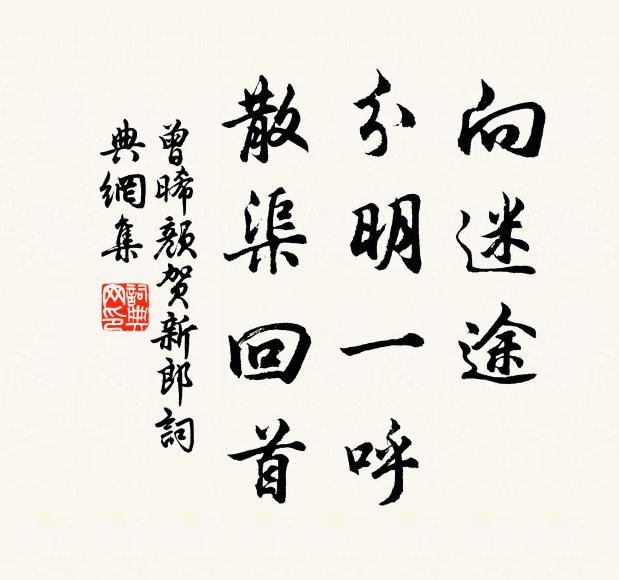 向迷途
分明一呼
散渠回首
曾晞颜贺新郎詞
典網集
詞典網印